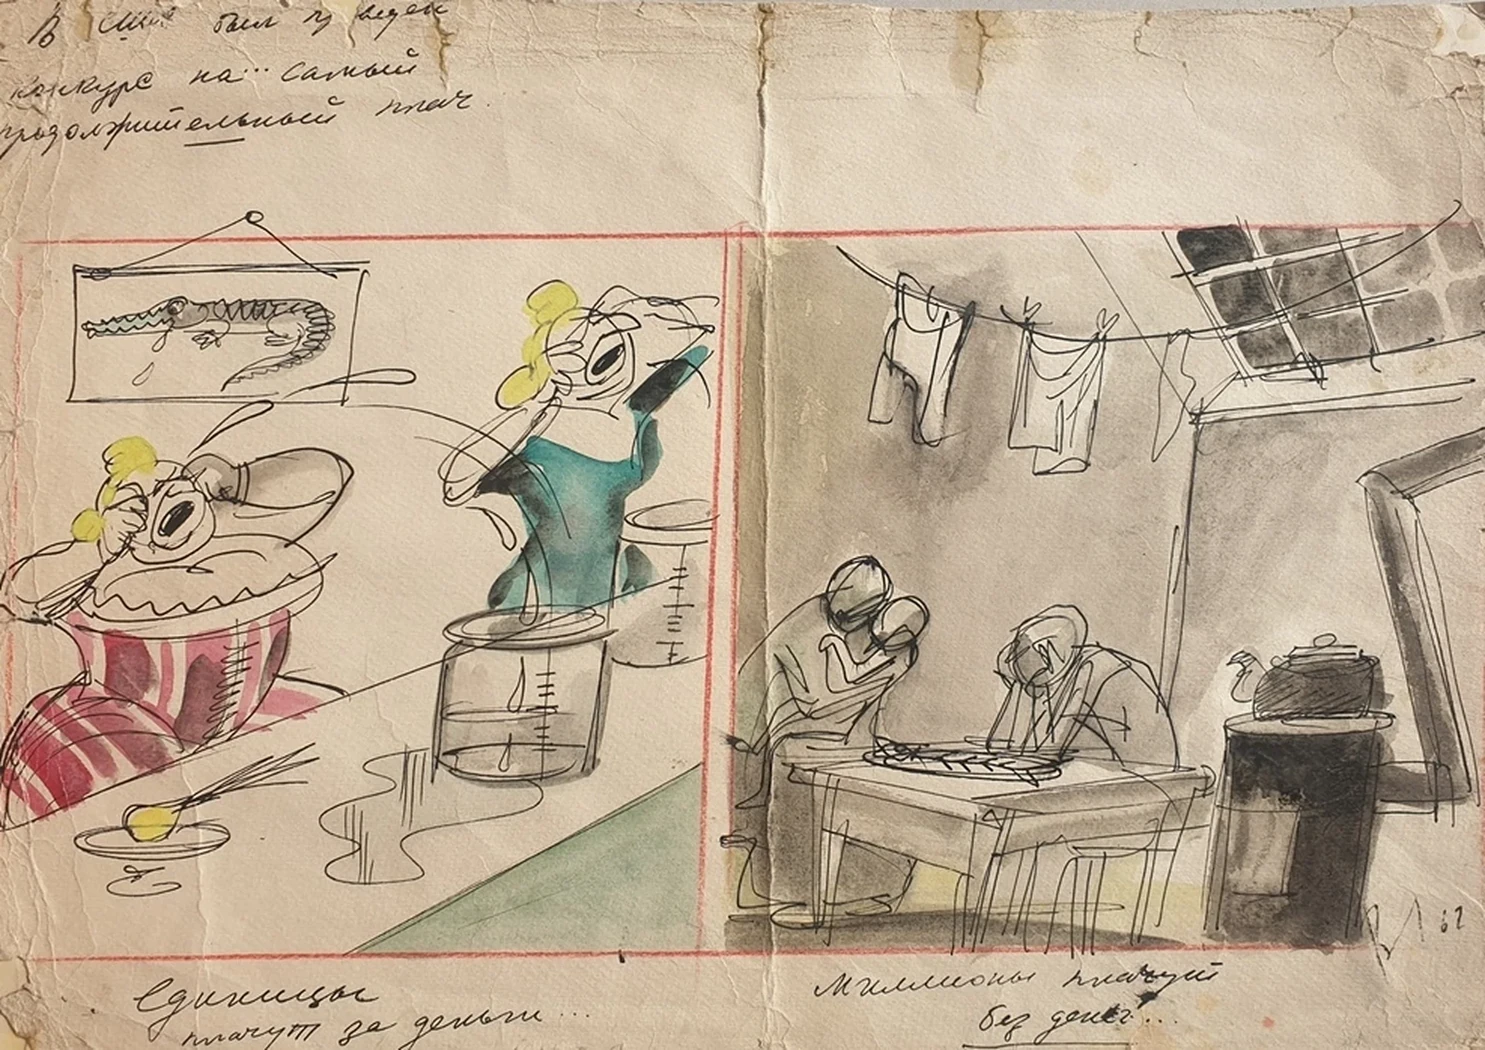 В США был проведен
конкурс на... самый
продолжительный плач.
Единицы
плачут за деньги...
Миллионы плачут
без денег...
62